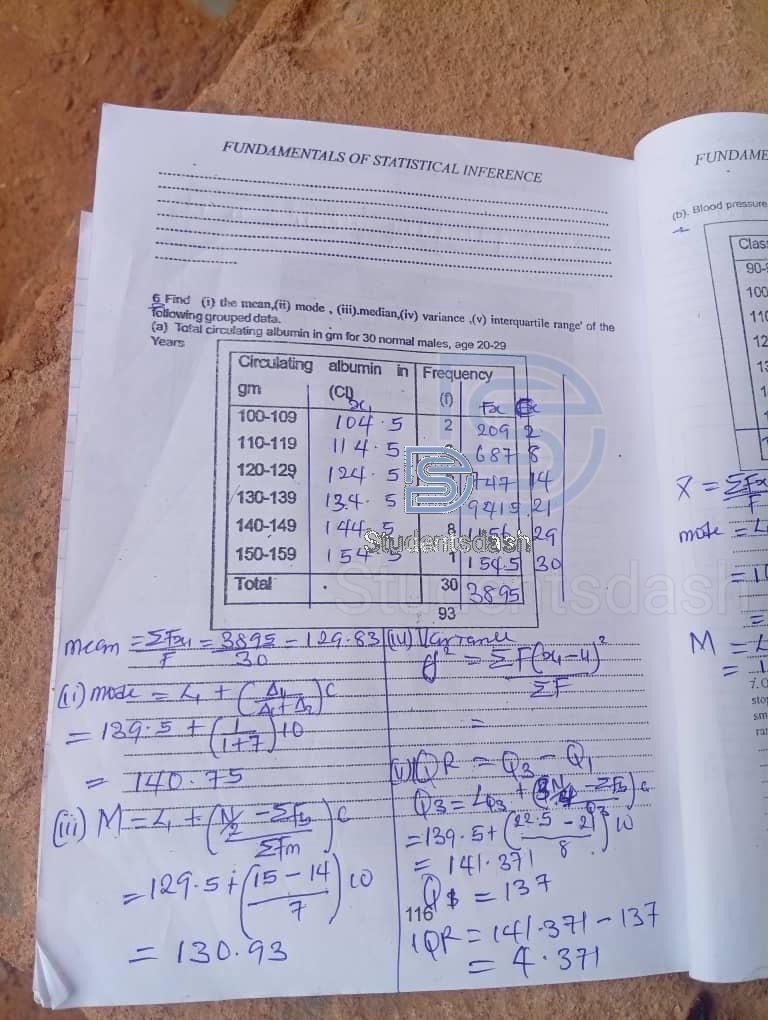 FUNDAMENTALS OF STATISTICAL INFERENCE
6 Find (i) the mean,(ii) mode , (iii).median,(iv) variance ,(v) interquartile range' of the
following grouped data.
(a) Total circulating albumin in gm for 30 normal males, age 20-29
Years
Circulating albumin in Frequency
gm (CI) (f)
x₁ Fx
100-109 104.5 2 209 2
110-119 114.5 687 8
120-129 124.5 747 14
130-139 134.5 9415 21
140-149 144.5 8 1156 29
150-159 154.5 1 154.5 30
Total 30 3895
93
mean = ΣFx₁/F = 3895/30 = 129.83
(ii) mode = L₁ + (Δ₁/Δ₁+Δ₂)c
= 139.5 + (1/1+7)10
= 140.75
(iii) M = L₁ + (N/2 - ΣFb/ΣFm)c
= 129.5 + (15 - 14/7)10
= 130.93
(iv) Variance
= ΣF(x₁-μ)²/ΣF
=
(v) IQR = Q₃ - Q₁
Q₃ = LQ₃ +
= 139.5 + (22.5 - 21/8)10
= 141.371
= 137
IQR = 141.371 - 137
= 4.371
116
FUNDAME
(b). Blood pressure
Class
90-
100
110
12
13
1
X̄ = ΣFx/F
mode = L
= 1
=
M = L
= 1
Studentsdash
Studentsdash